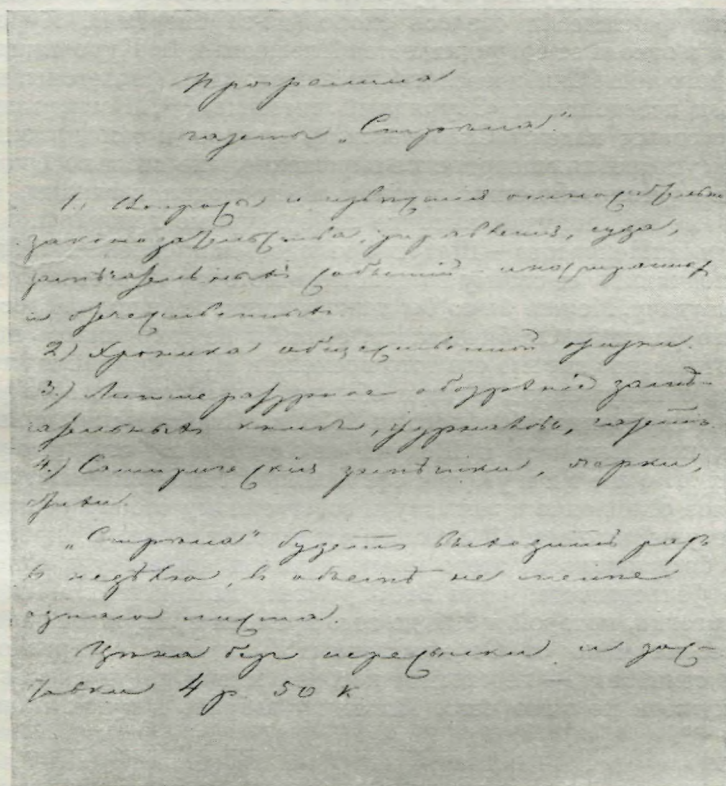 Программа
газеты „Стрѣла“.
1.) Вопросы и извѣстія относительно
законодательства, управленія, суда,
замѣчательныхъ событій иностранных
и отечественныхъ.
2.) Хроника общественной жизни.
3.) Литературное обозрѣніе замѣ-
чательныхъ книгъ, журналовъ, газетъ.
4.) Сатирическія замѣтки, очерки,
стихи.
„Стрѣла“ будетъ выходить разъ
въ недѣлю, въ объемѣ не менѣе
одного листа.
Цѣна безъ пересылки и дос-
тавки 4 р 50 к